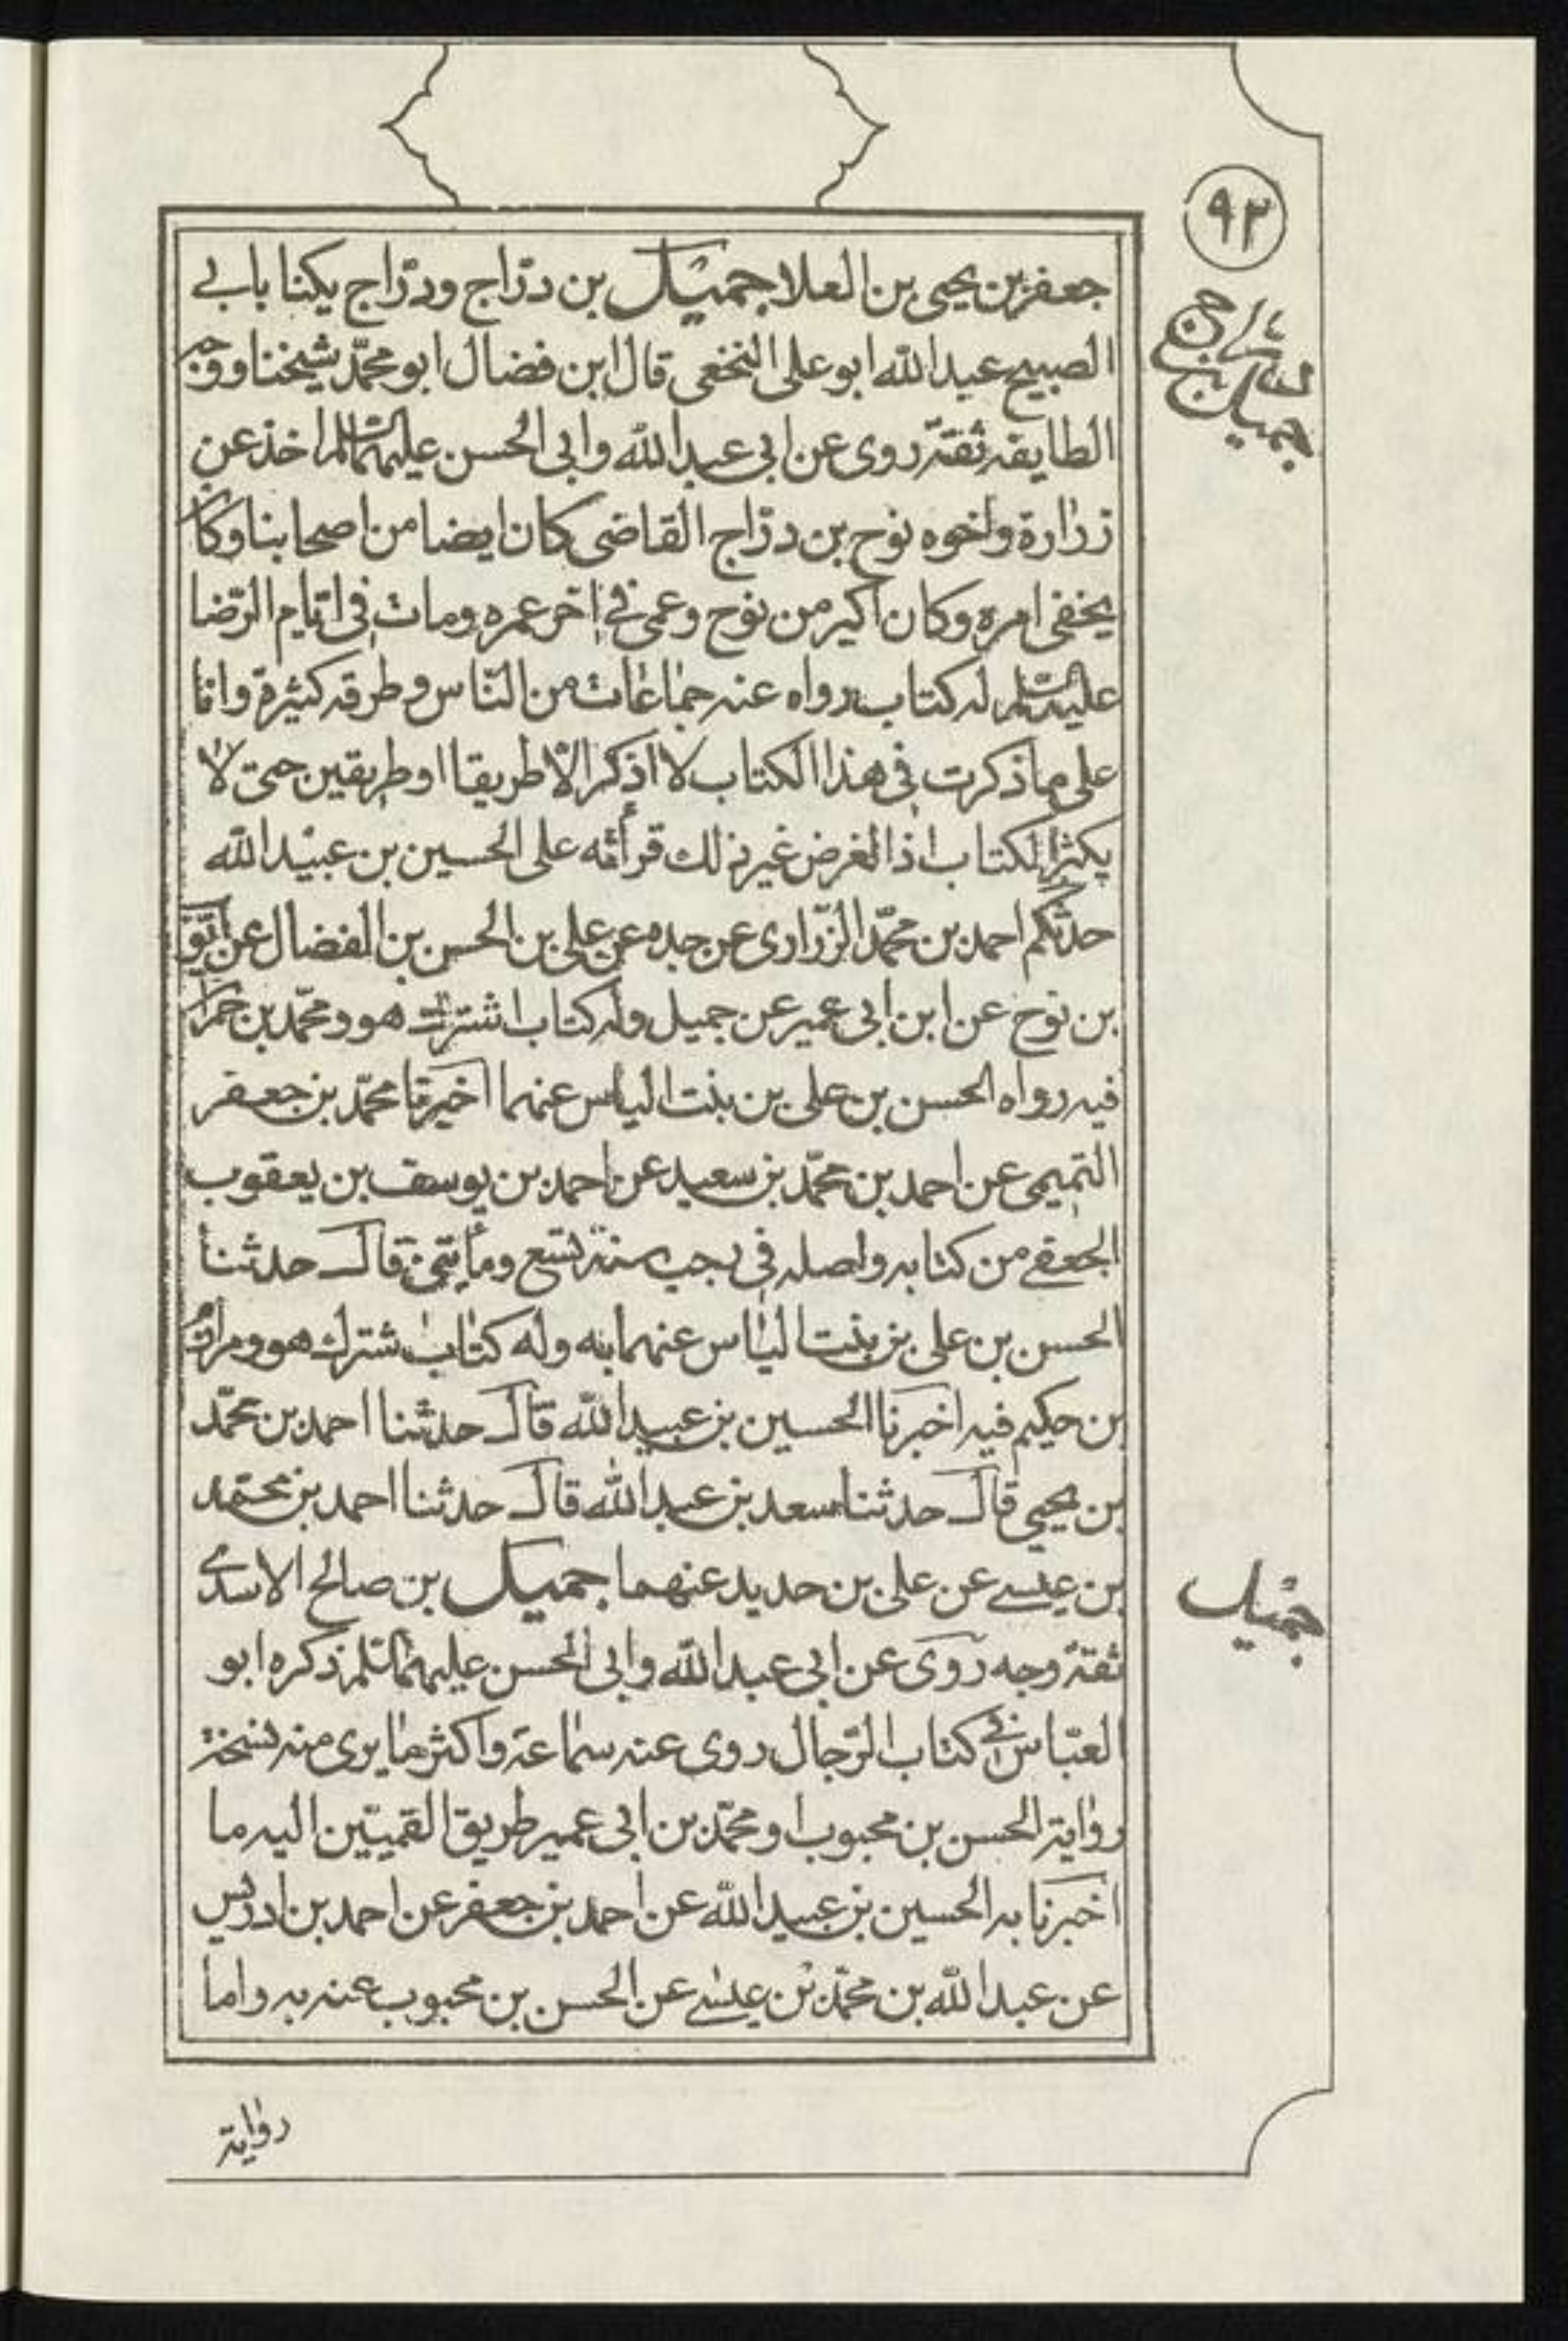 ٩٢
جعفر بن يحيى بن العلا جميل بن درّاج ودرّاج يكنا بابى
الصبيح عبد الله ابو على النخعى قال ابن فضال ابو محمّد شيخنا ووجه
الطايفة ثقة روى عن ابى عبد الله وابى الحسن عليهما السلم اخذ عن
زرارة واخوه نوح بن درّاج القاضى كان ايضا من اصحابنا وكان
يخفى امره وكان اكبر من نوح وعمى فى اخر عمره ومات فى ايّام الرّضا
عليه السلم له كتاب رواه عنه جماعات من النّاس وطرقه كثيرة وانا
على ما ذكرت فى هذا الكتاب لا اذكر الّا طريقا او طريقين حتى لا
يكثر الكتاب اذ الغرض غير ذلك قرأته على الحسين بن عبيد الله
حدّثكم احمد بن محمّد الزّرارى عن جده عن على بن الحسن بن الفضال عن ايّوب
بن نوح عن ابن ابى عمير عن جميل وله كتاب اشترك هو ومحمّد بن حمران
فيه رواه الحسن بن على بن بنت الياس عنهما اخبرنا محمّد بن جعفر
التميمى عن احمد بن محمّد بن سعيد عن احمد بن يوسف بن يعقوب
الجعفى من كتابه واصله فى رجب سنة تسع ومأتين قال حدثنا
الحسن بن على بن بنت الياس عنهما به وله كتاب اشترك هو ومرازم
بن حكيم فيه اخبرنا الحسين بن عبيد الله قال حدثنا احمد بن محمّد
بن يحيى قال حدثنا سعد بن عبد الله قال حدثنا احمد بن محمّد
بن عيسى عن على بن حديد عنهما جميل بن صالح الاسدى
ثقة وجه روى عن ابى عبد الله وابى الحسن عليهما السلم ذكره ابو
العبّاس فى كتاب الرّجال روى عنه سماعة واكثر ما يرى منه نسخة
رواية الحسن بن محبوب او محمّد بن ابى عمير طريق القميّين اليه ما
اخبرنا به الحسين بن عبيد الله عن احمد بن جعفر عن احمد بن ادريس
عن عبد الله بن محمّد بن عيسى عن الحسن بن محبوب عنه به واما
جميل
رواية